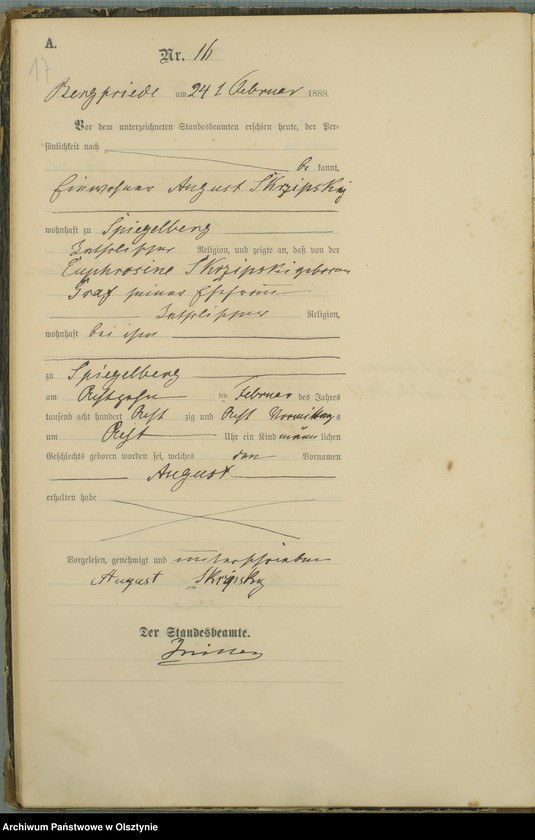 A.
17
Nr. 16
Bergfriede am 24 t Februar 1888.
Vor dem unterzeichneten Standesbeamten erschien heute, der Per-
sönlichkeit nach
be kannt,
Einwohner August Skrzipsky
wohnhaft zu Spiegelberg
katholischer Religion, und zeigte an, daß von der
Euphrosine Skrzipski geborene
Graf seiner Ehefrau
katholischer Religion,
wohnhaft bei ihm
zu Spiegelberg
am Achtzehn ten Februar des Jahres
tausend acht hundert Acht zig und Acht Vormittags
um Acht Uhr ein Kind männ lichen
Geschlechts geboren worden sei, welches den Vornamen
August
erhalten habe
Vorgelesen, genehmigt und unterschrieben
August Skrzipsky
Der Standesbeamte.
Archiwum Państwowe w Olsztynie